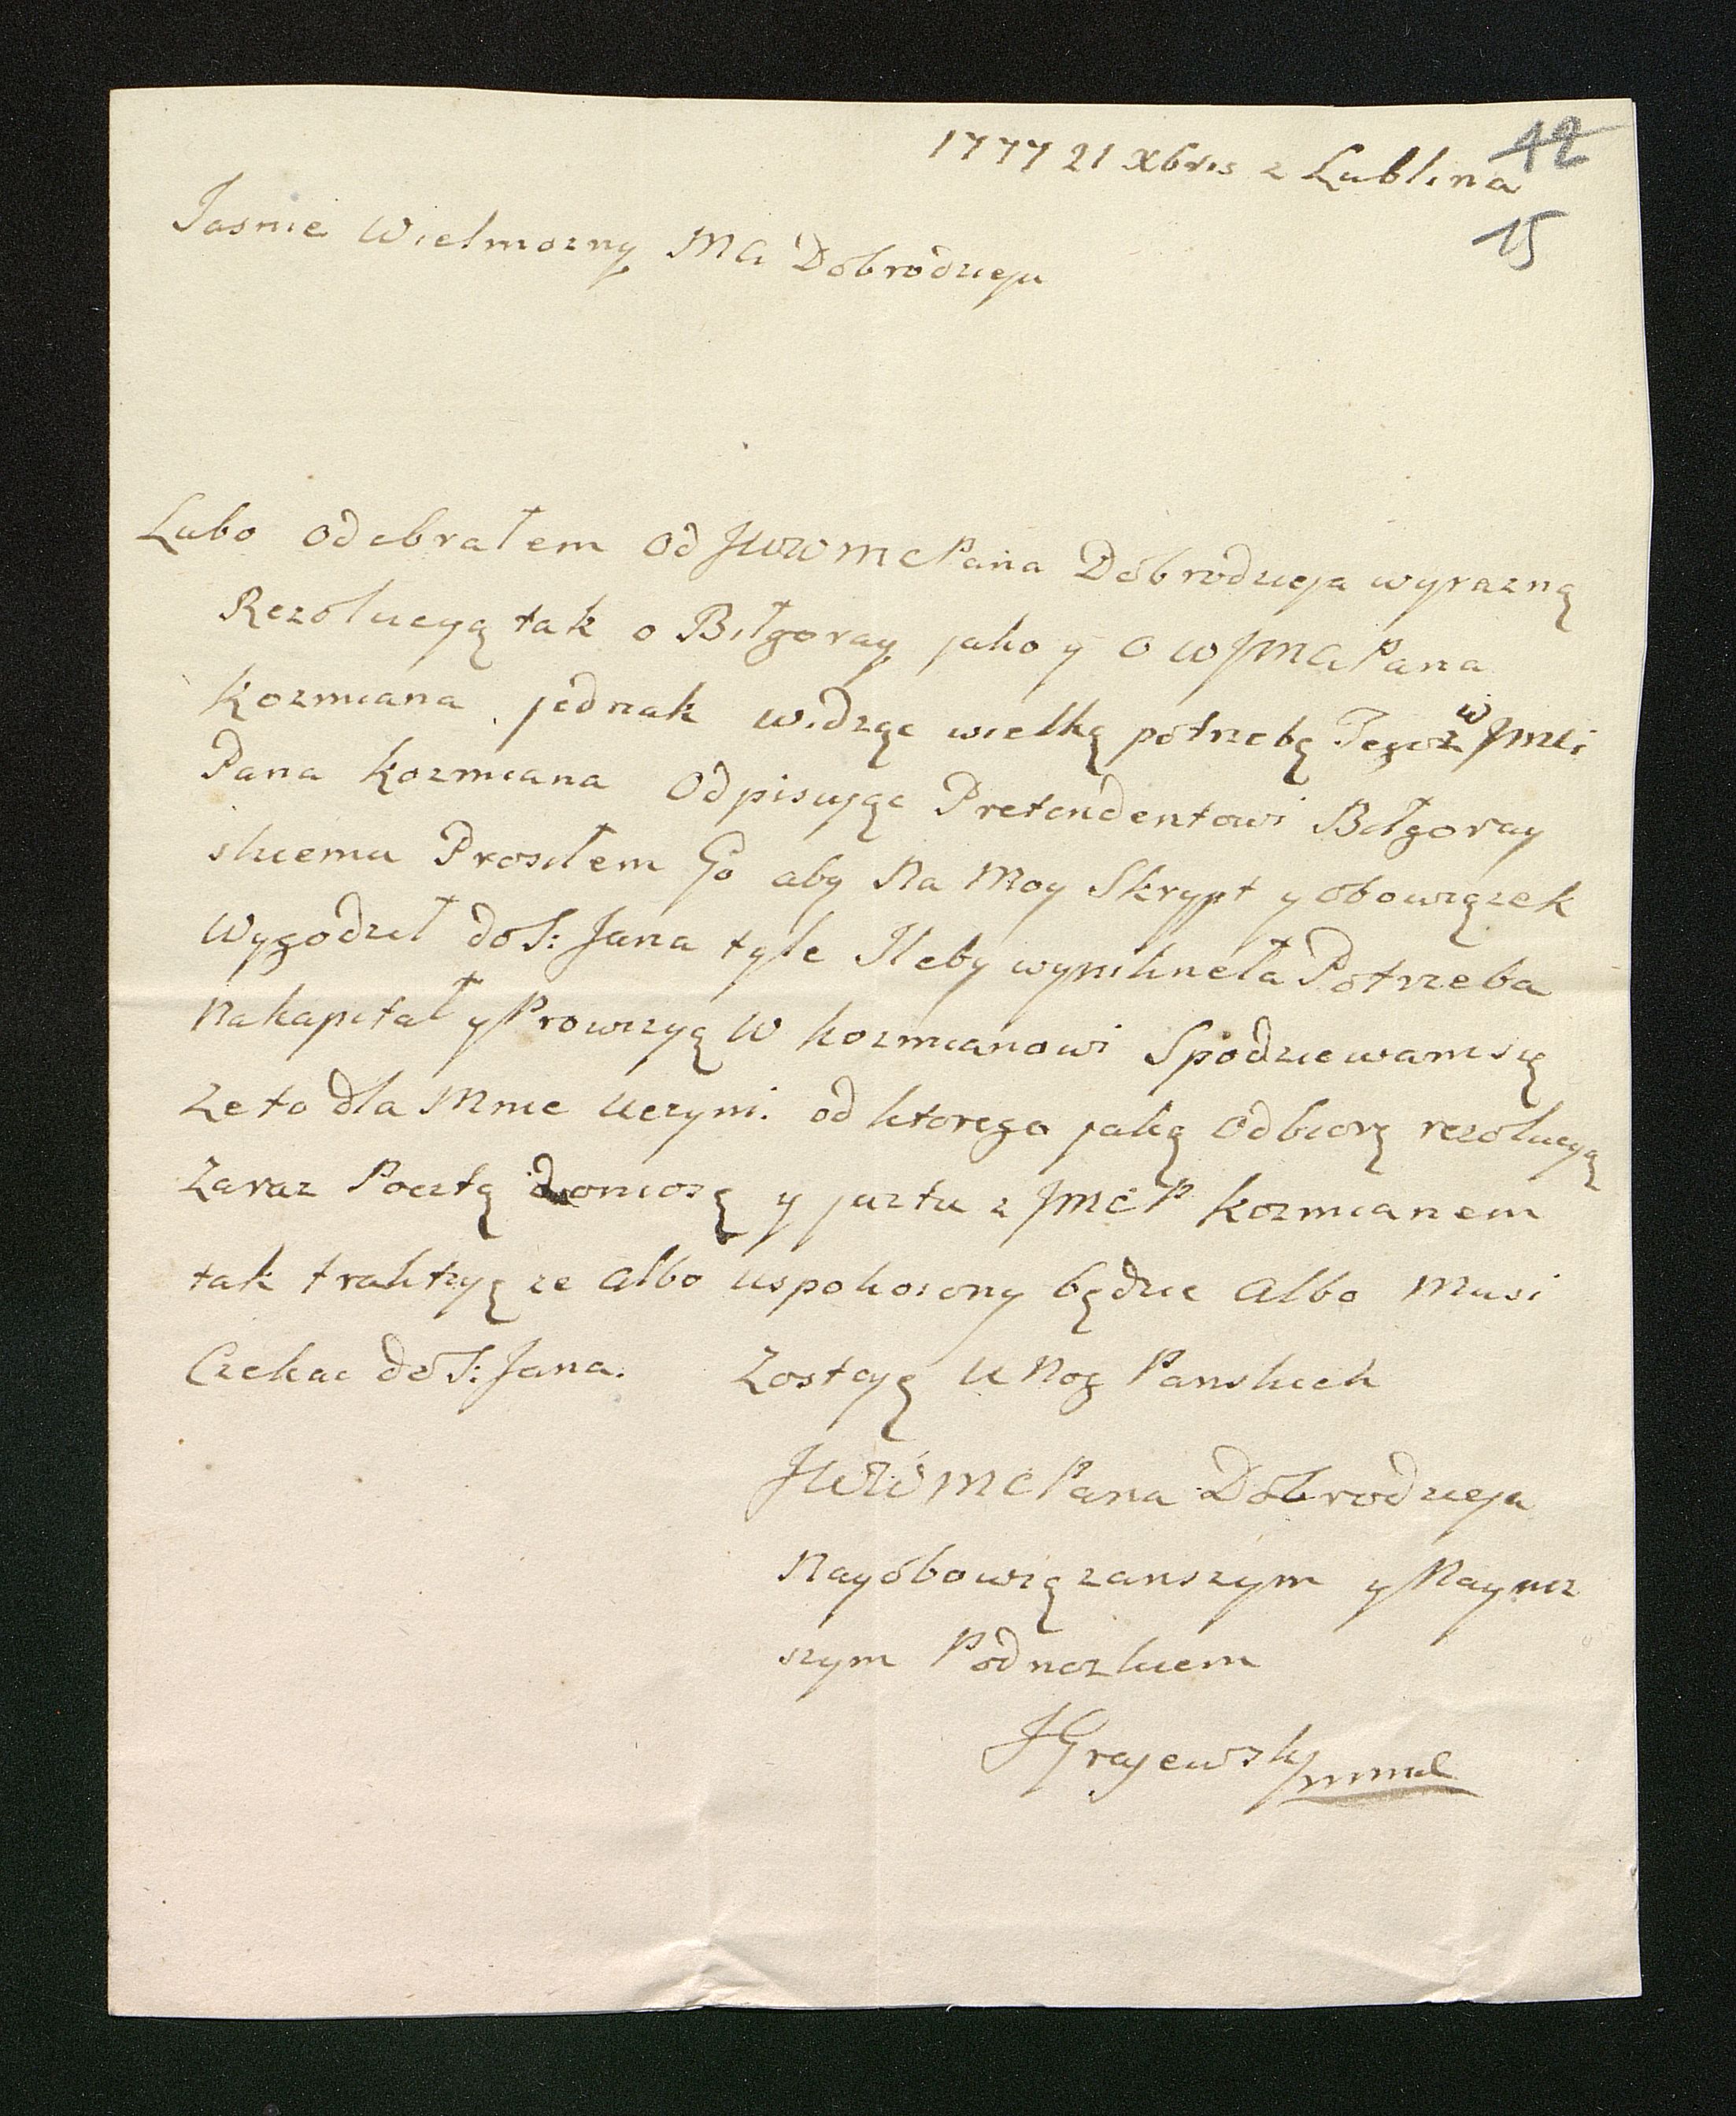 1777 21 Xbris z Lublina
42
15
Jasnie Wielmozny MCi Dobrodzieju
Lubo odebrałem od JWWMCPana Dobrodzieja wyrazną
Rezolucyą tak o Biłgoray jako y o WJMCiPana
Kozmiana jednak widząc wielką potrzebę Tegoz W JMCi
Pana Kozmiana Odpisując Pretendentowi Biłgoray
skiemu Prosiłem Go aby Na Moy Skrypt y obowiązek
Wygodził do S: Jana tyle Ileby wyniknęła Potrzeba
Na kapitał y Prowizyą W Kozmianowi Spodziewam się
Ze to dla Mnie Uczyni. od ktorego jaką Odbiorę rezolucyą
Zaraz Pocztą doniosę y juz tu z JMCP Kozmianem
tak traktuję ze Albo uspokoiony będzie Albo Musi
Czekac do S: Jana. Zostaję U Nog Panskich
JWWMCPana Dobrodzieja
Nayobowiązanszym y Nayniz
szym Podnozkiem
JGrajewski mml